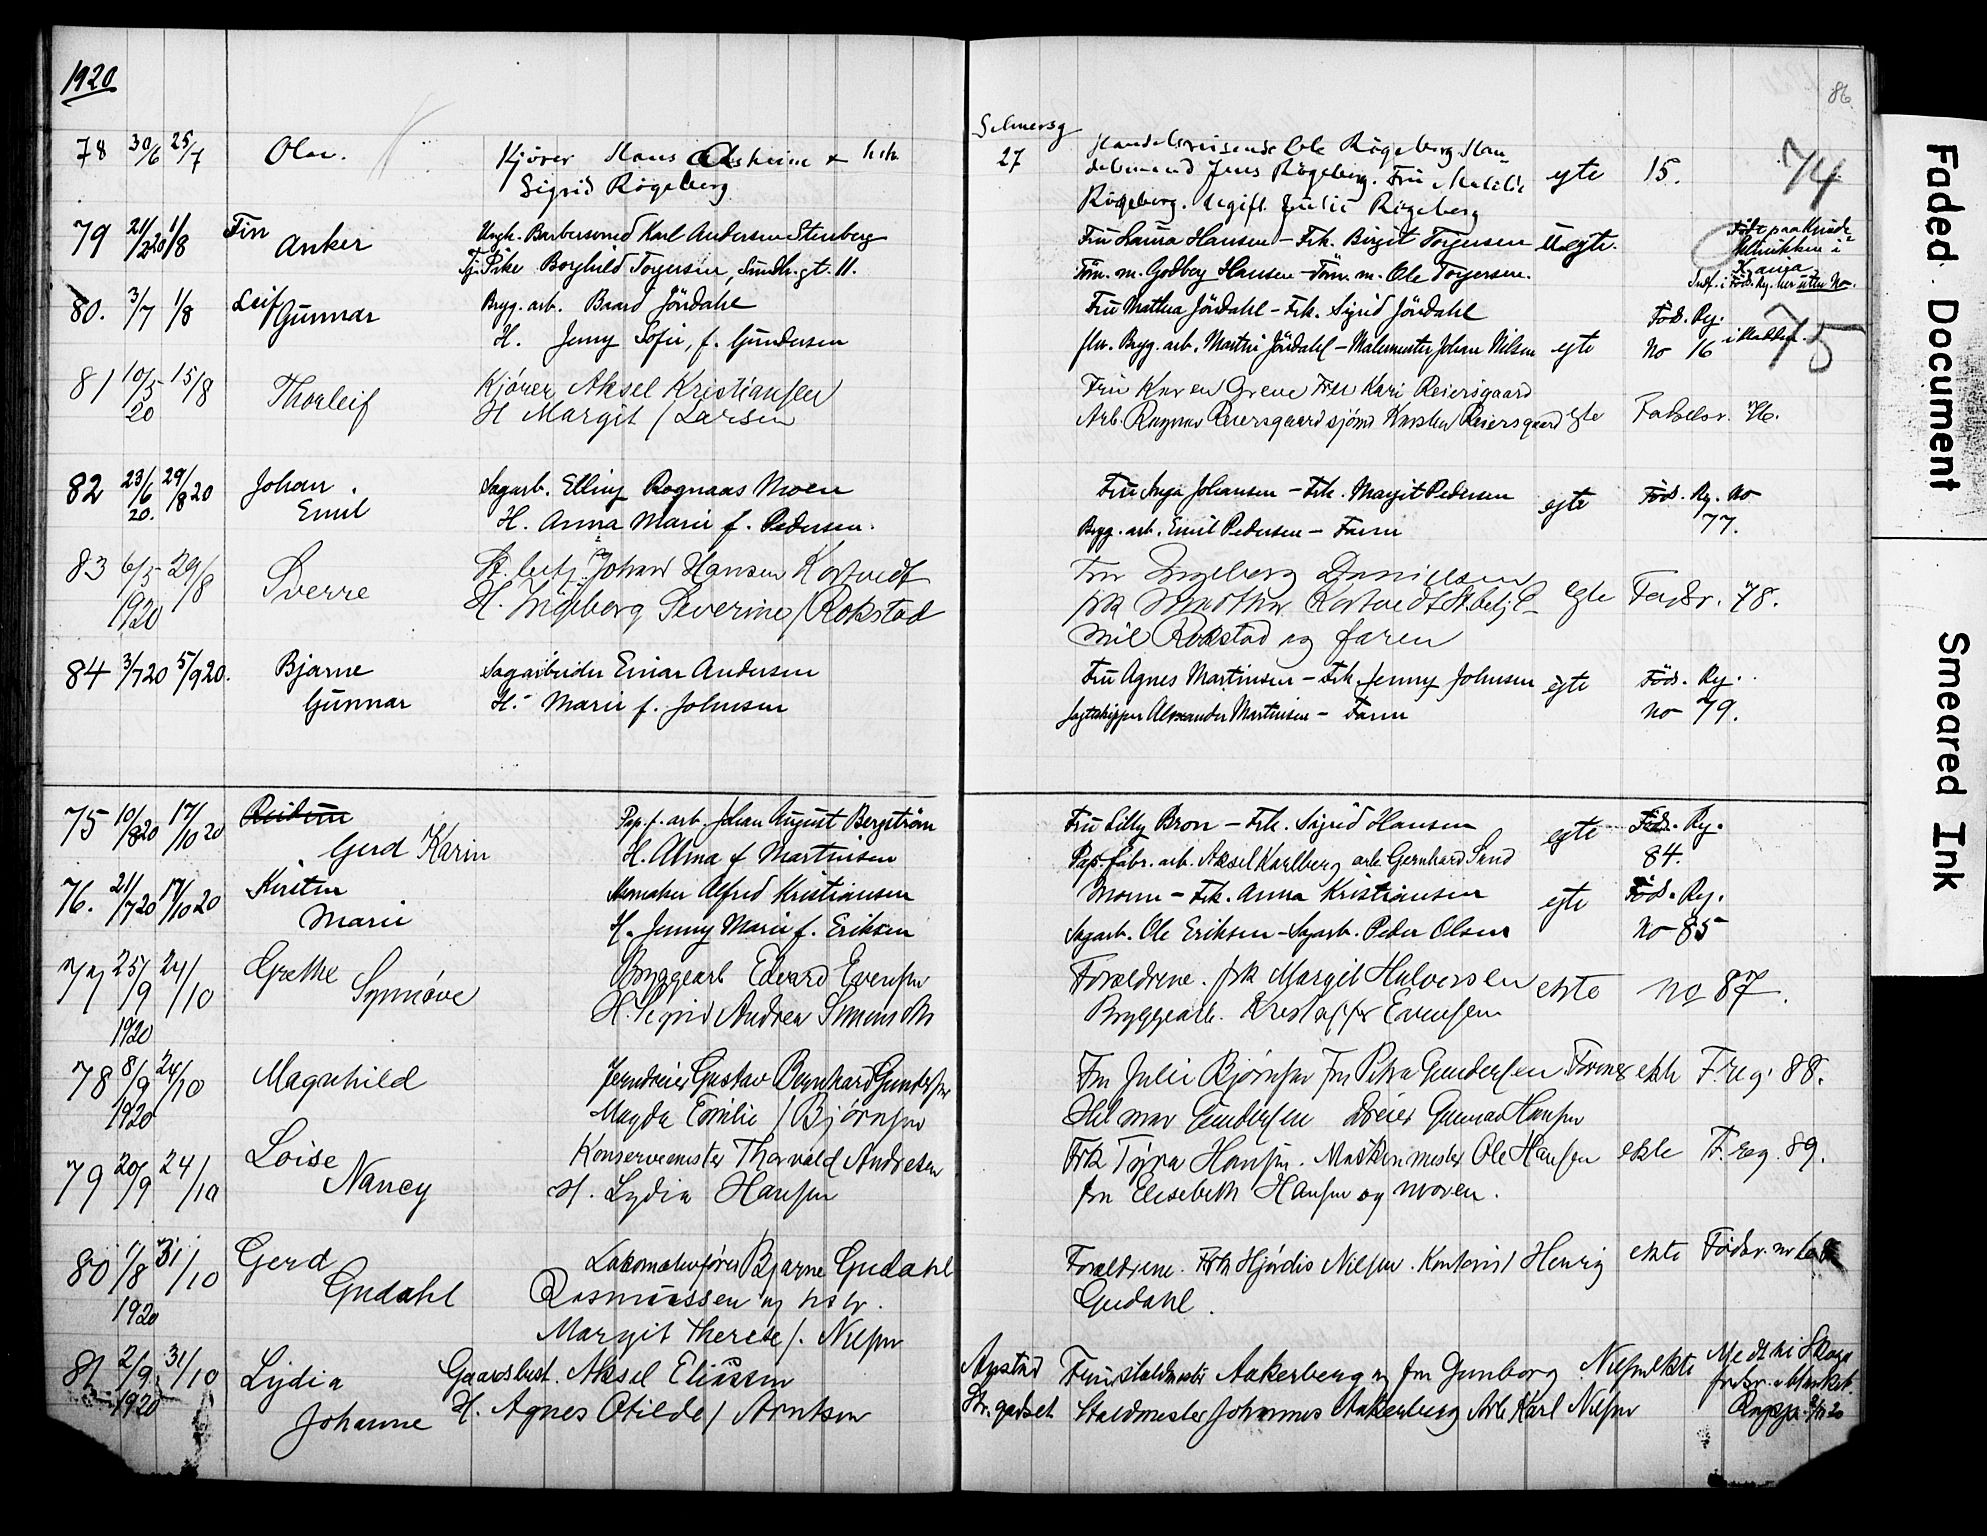 1920
86
78 30/6 25/7 Olav. Kjører Hans Alsheim + h.h. Selmersg Handelsreisende Ole Rögeberg Han-
Sigrid Rögeberg 27 delsmand Jens Rögeberg. Fru egte 15. 74
Rögeberg. Ugift Julie Rögeberg
79 21/2 20 1/8 Fin Anker Ungk. Barbersvend Karl Andersen Stenberg Fru Laura Hansen - Frk. Birgit Torgersen Uegte. Född paa Kvinde
Tj. Pike Borghild Torgersen, Sundh.gt. 11. Töm. m. Godberg Hansen - Töm. m. Ole Torgersen. Klinikken i
Kania
Indf. i Föds. Rg. her uten No.
80. 3/7 1/8 Leif Gunnar Bryg. arb. Baard Jördahl Fru Mathea Jördahl - Frk. Sigrid Jördahl Föds. Rg.
H. Jenny Sofie, f. Gundersen Bryg. arb. Martin Jördahl - Malermester Johan Nilsen egte No 16 i klokkeb. 75
81 10/5 20 15/8 Thorleif Kjører Aksel Kristiansen Fru Karen Greve Fru Kari Reiersgaard
H Margit f Larsen Arb. Ragnar Reiersgaard sjöm Karsten Reiersgaard egte Fødselsr. 76.
82 23/6 20. 29/8 20 Johan Emil Sagarb. Elling Rognaas Moen Fru Inga Johansen - Frk. Margit Pedersen egte Föds. Rg. No
H. Anna Marie f. Pedersen. Bryg. arb. Emil Pedersen - Faren 77.
83 6/5 1920 29/8 Sverre St. betj. Johan Hansen Kortvedt Fru Ingeberg Danielsen
H. Ingeborg Severine f Rokstad frk Kortvedt St.betj. E- egte Fødsr. 78.
mil Rokstad og faren
84 3/7 20 5/9 20. Bjarne Gunnar Sagarbeider Einar Andersen Fru Agnes Martinsen - Frk. Jenny Johnsen egte Föds. Rg.
H. Marie f. Johnsen Jagtskipper Alexander Martinsen - Faren No 79.
75 10/8 20 17/10 20 Reidun Gerd Karin Pap. f. arb. Johan August Bergström Fru Lilly Bron - Frk. Sigrid Hansen egte Föds. Rg.
H. Alma f Martinsen Pap. fabr. arb. Aksel Karlberg arb. Gernhard Sand 84.
76. 21/7 20 17/10 20 Kirsten Marie Alfred Kristiansen Moren - Frk. Anna Kristiansen egte Föd. Rg.
H. Jenny Marie f. Eriksen Sagarb. Ole Eriksen - Sagarb. Peder Olsen No 85
77 25/9 1920 24/10 Grethe Synnøve Bryggearb Edvard Evensen Forældrene. frk Margit Halvorsen ekte No 87.
H. Sigrid Andrea Bryggearb. Kristoffer Evensen
78 8/9 1920 24/10 Magnhild Jerndreier Gustav Bernhard Gundersen Fru Julie Bjørnsen fru Petra Gundersen Former ekte F.reg. 88.
Magda Emilie f Bjørnsen Hilmar Gundersen Dreier Gunnar Hansen
79 20/9 24/10 Loise Nancy Konservemester Thorvald Andresen Frk Tora Hansen. Maskinmester Ole Hansen ekte F. reg. 89.
H. Lydia Hansen fru Elisebeth Hansen og moren.
80 1/8 1920 31/10 Gerd Gudahl Lokomotivfører Bjarne Gudahl Forældrene. Frk Hjørdis Nilsen. Kontorist Henrig ekte Fødsr. nr
Rasmussen og hstr. Gudahl.
Margit Therese f. Nilsen
81 2/9 1920 31/10 Lydia Johanne Gaardsbest. Aksel Eliassen Fru staldmester Aakerberg og fru Gunborg Nilsen ekte
H. Agnes Otilde f Arntsen Str. godset Staldmester Johannes Aakerberg Arb Karl Nilsen
Faded Document
Smeared Ink